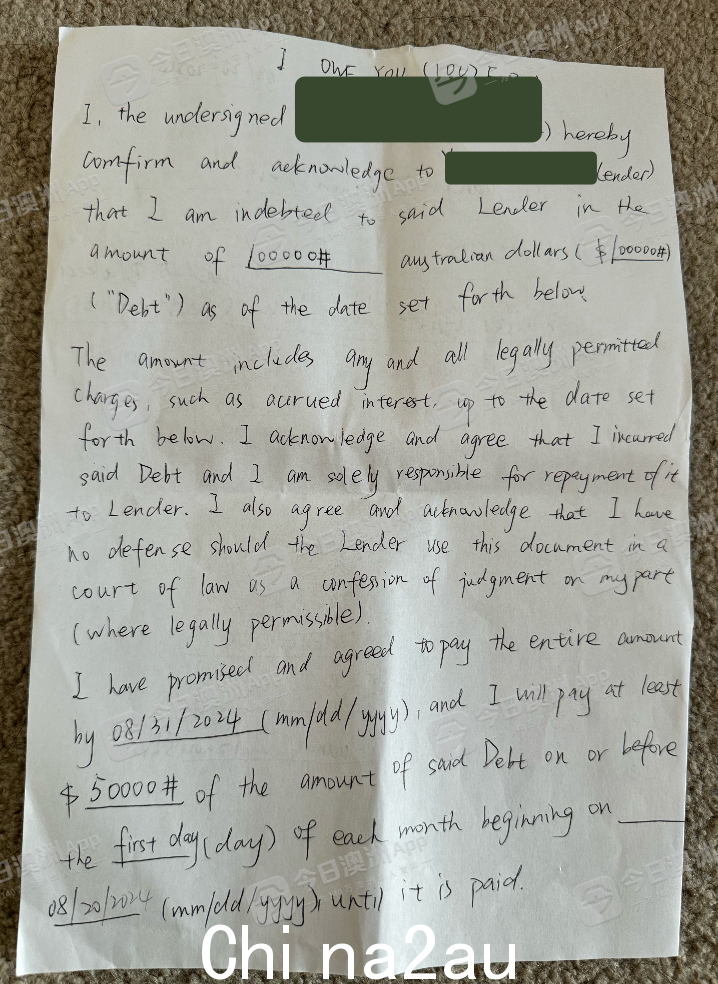 I OWE YOU (IOU)
I, the undersigned ) hereby
comfirm and acknowledge to Lender)
that I am indebted to said Lender in the
amount of 100000# australian dollars ( $100000#)
("Debt") as of the date set forth below.
The amount includes any and all legally permitted
charges, such as accrued interest, up to the date set
forth below. I acknowledge and agree that I incurred
said Debt and I am solely responsible for repayment of it
to Lender. I also agree and acknowledge that I have
no defense should the Lender use this document in a
court of law as a confession of judgment on my part
(where legally permissible).
I have promised and agreed to pay the entire amount
by 08/31/2024 (mm/dd/yyyy), and I will pay at least
$ 50000# of the amount of said Debt on or before
the first day (day) of each month beginning on
08/20/2024 (mm/dd/yyyy), until it is paid.
China2au
今日澳洲App